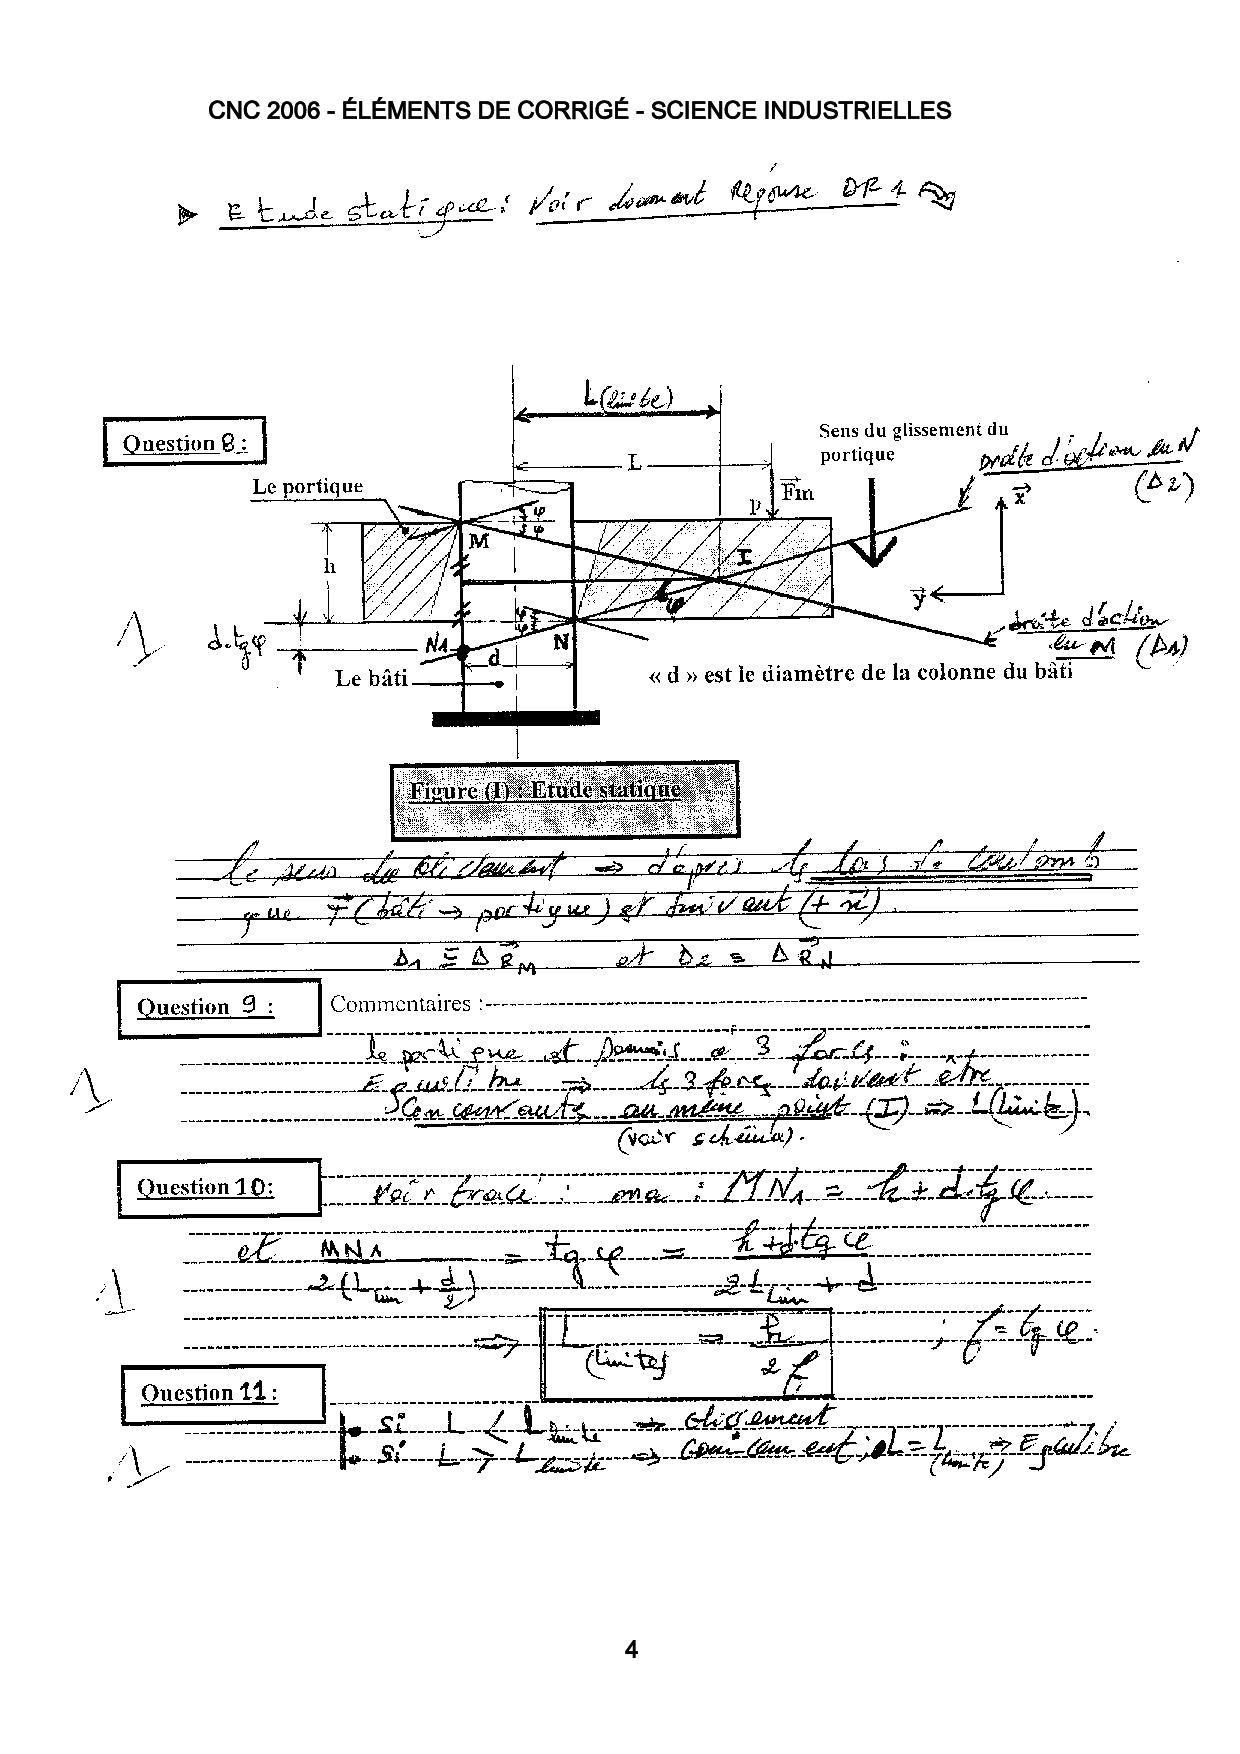 CNC 2006 - ÉLÉMENTS DE CORRIGÉ - SCIENCE INDUSTRIELLES
Etude statique : Voir document Réponse DR1
L(limite)
Question 8 :
Sens du glissement du
portique
Droite d'action en N
(Δ2)
L
Le portique
Fin
P
x
φ
φ
M
h
I
φ
y
d.tgφ
N1
φ
φ
N
d
droite d'action
en M (Δ1)
1
Le bâti
« d » est le diamètre de la colonne du bâti
Figure (I) : Etude statique
le sens du glissement ⇒ d'après les lois de coulomb
que T (bâti → portique) est suivant (+ x).
Δ1 ≡ Δ R_M et Δ2 ≡ Δ R_N
Question 9 :
Commentaires :
le portique est soumis à 3 forces :
1
Equilibre ⇒ les 3 forces doivent être
Concourantes au même point (I) ⇒ L(limite).
(voir schéma).
Question 10:
Voir tracé : on a : MN1 = h + d.tgφ.
et MN1 / 2(Llim + d/2) = tgφ = h + d.tgφ / 2Llim + d
1
⇒ L(limite) = h / 2f ; f = tgφ.
Question 11 :
• Si L < Llimite ⇒ Glissement
• Si L > Llimite ⇒ Coincement ; L = L(limite) ⇒ Equilibre
1
4